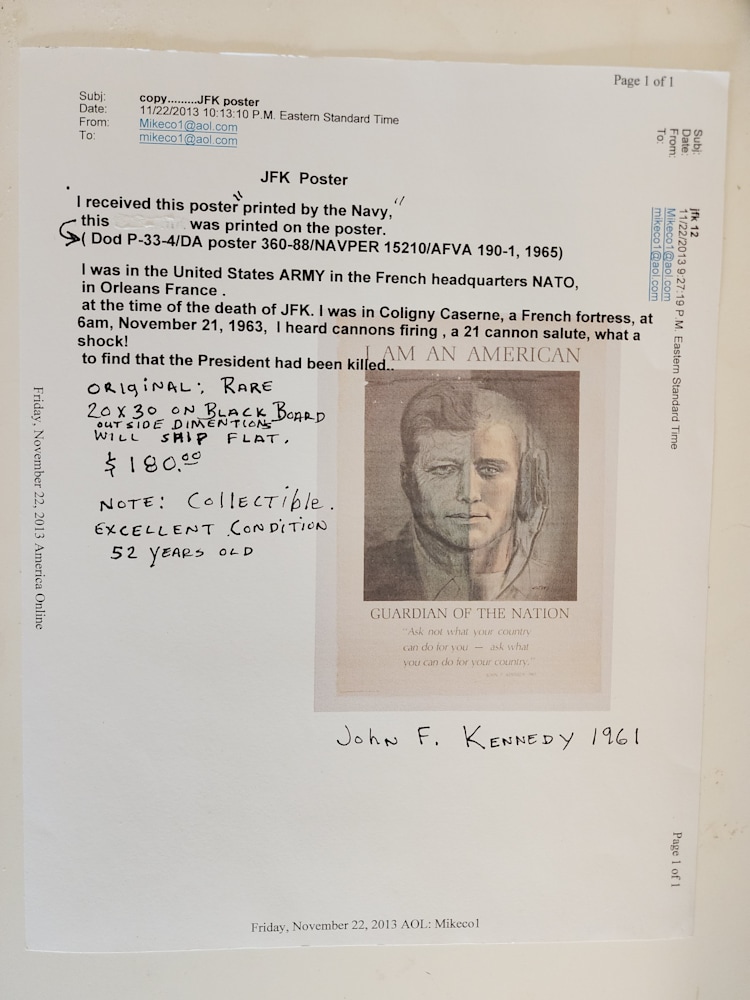 Page 1 of 1
Subj: copy.........JFK poster
Date: 11/22/2013 10:13:10 P.M. Eastern Standard Time
From: Mikeco1@aol.com
To: mikeco1@aol.com
JFK Poster
I received this poster "printed by the Navy,"
this was printed on the poster.
( Dod P-33-4/DA poster 360-88/NAVPER 15210/AFVA 190-1, 1965)
I was in the United States ARMY in the French headquarters NATO,
in Orleans France .
at the time of the death of JFK. I was in Coligny Caserne, a French fortress, at
6am, November 21, 1963, I heard cannons firing , a 21 cannon salute, what a
shock!
to find that the President had been killed..
ORIGINAL: RARE
20 X 30 ON BLACK BOARD
OUTSIDE DIMENTIONS
WILL SHIP FLAT.
$180.00
NOTE: COLLECTIBLE.
EXCELLENT CONDITION
52 YEARS OLD
I AM AN AMERICAN
GUARDIAN OF THE NATION
"Ask not what your country
can do for you — ask what
you can do for your country."
JOHN F. KENNEDY 1961
Subj: jfk 12
Date: 11/22/2013 9:27:19 P.M. Eastern Standard Time
From: Mikeco1@aol.com
To: mikeco1@aol.com
Page 1 of 1
Friday, November 22, 2013 America Online
Friday, November 22, 2013 AOL: Mikeco1